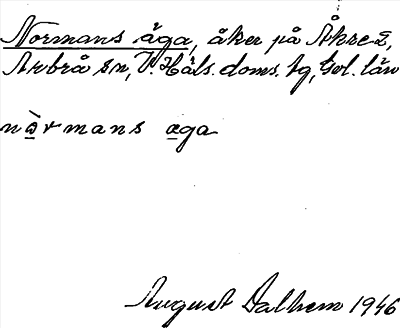 Normans äga, åker på Åkre 2,
Arbrå sn, V. Häls. doms. tg, Gvl. län
nȯ̀rmans æga
August Dalhem 1946